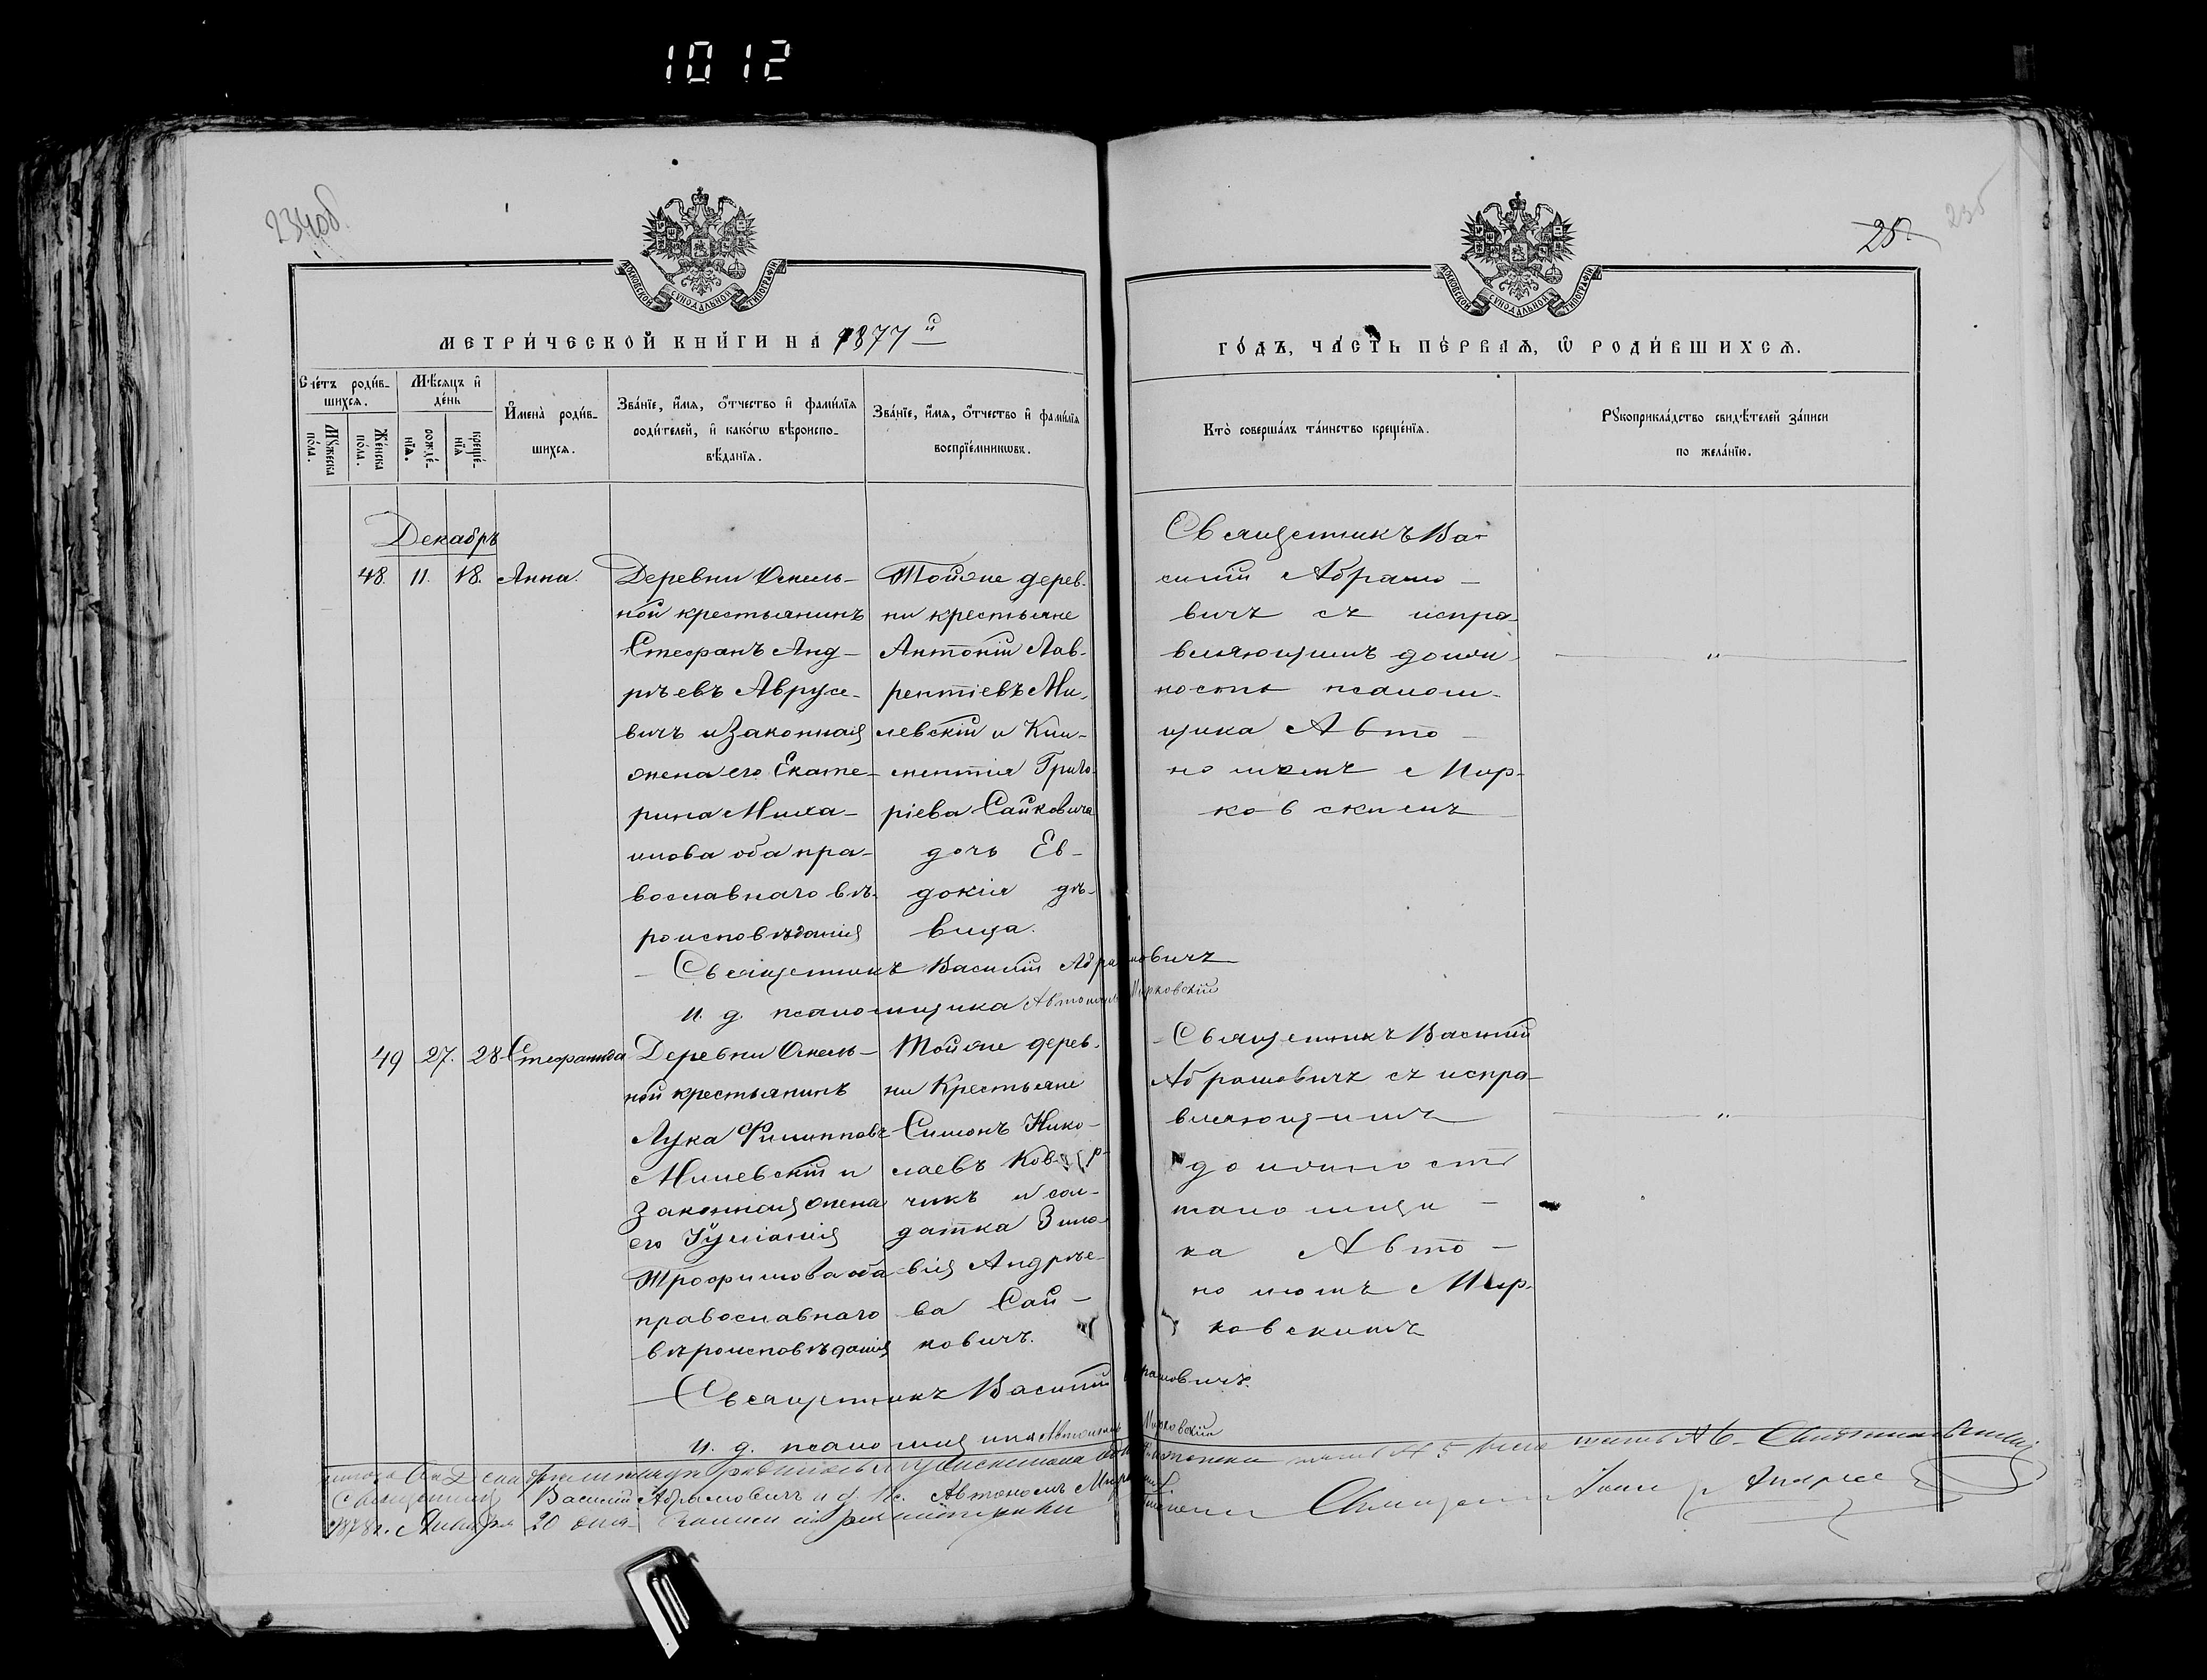 1012
234об
25
235
МОСКОВСКОЙ СѴНОДАЛЬНОЙ ТИПОГРАФІИ
МОСКОВСКОЙ СѴНОДАЛЬНОЙ ТИПОГРАФІИ
МЕТРИ́ЧЕСКОЙ КНИ́ГИ НА 1877й
ГО́ДЪ, ЧА́СТЬ ПЕ́РВАѦ, Ѡ РОДИ́ВШИХСѦ.
Сче́тъ роди́в-
шихсѧ.
Мѹ́жеска по́ла.
Же́нска по́ла.
Мѣ́сѧцъ и де́нь
рожде́-нїѧ.
креще́-нїѧ
И҆мена̀ роди́в-
шихсѧ.
Зва́нїе, и҆́мѧ, ѻ҆́тчество и҆ фами́лїѧ
роди́телей, и҆ како́гѡ вѣроиспо-
вѣ́данїѧ.
Зва́нїе, и҆́мѧ, ѻ҆́тчество и҆ фами́лїѧ
воспрїе́мникѡвъ.
Кто̀ соверша́лъ та́инство креще́нїѧ.
Рꙋкоприкла́дство свидѣ́телей за́писи
по жела́нїю.
Декабрь
48. 11. 18. Анна.
Деревни Осель-
ной крестьянинъ
Стефанъ Анд-
реевъ Авруце-
вичъ и законная
жена его Екате-
рина Миха-
илова оба пра-
вославнаго вѣ-
роисповѣданія
Тойже дерев-
ни крестьяне
Антоній Лав-
рентіевъ Ми-
левскій и Кли-
ментія Григо-
ріева Сайковича
дочь Ев-
докія дѣ-
вица.
Священникъ Ва-
силій Абрамо-
вичъ съ испра-
вляющимъ долж-
ность псалом-
щика Авто-
номомъ Мир-
ковскимъ
Священникъ Василій Абрамовичъ
и. д. псаломщика Автономъ Мирковскій
49 27. 28 Стефанида
Деревни Осель-
ной крестьянинъ
Лука Филипповъ
Милевскій и
законная жена
его Іуліанія
Трофимова оба
православнаго
вѣроисповѣданія
Тойже дерев-
ни Крестьяне
Симонъ Нико-
лаевъ
чикъ и сол-
датка Зино-
вія Андрее-
ва Сай-
ковичъ.
Священникъ Василій
Абрамовичъ съ испра-
вляющимъ
должность
щи-
ка Авто-
номомъ Мир-
ковскимъ
Священникъ Василій Абрамовичъ.
и. д. псаломщика Автономъ Мирковскій
Василій Абрамовичъ и. д. Пс. Автономъ
1878 г. Января 20 дня